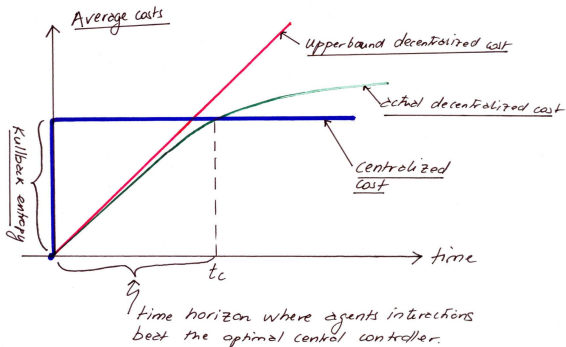 Average costs
upperbound decentralized cost
actual decentralized cost
centralized
cost
Kullback entropy
tc
time
time horizon where agents interactions
beat the optimal central controller.